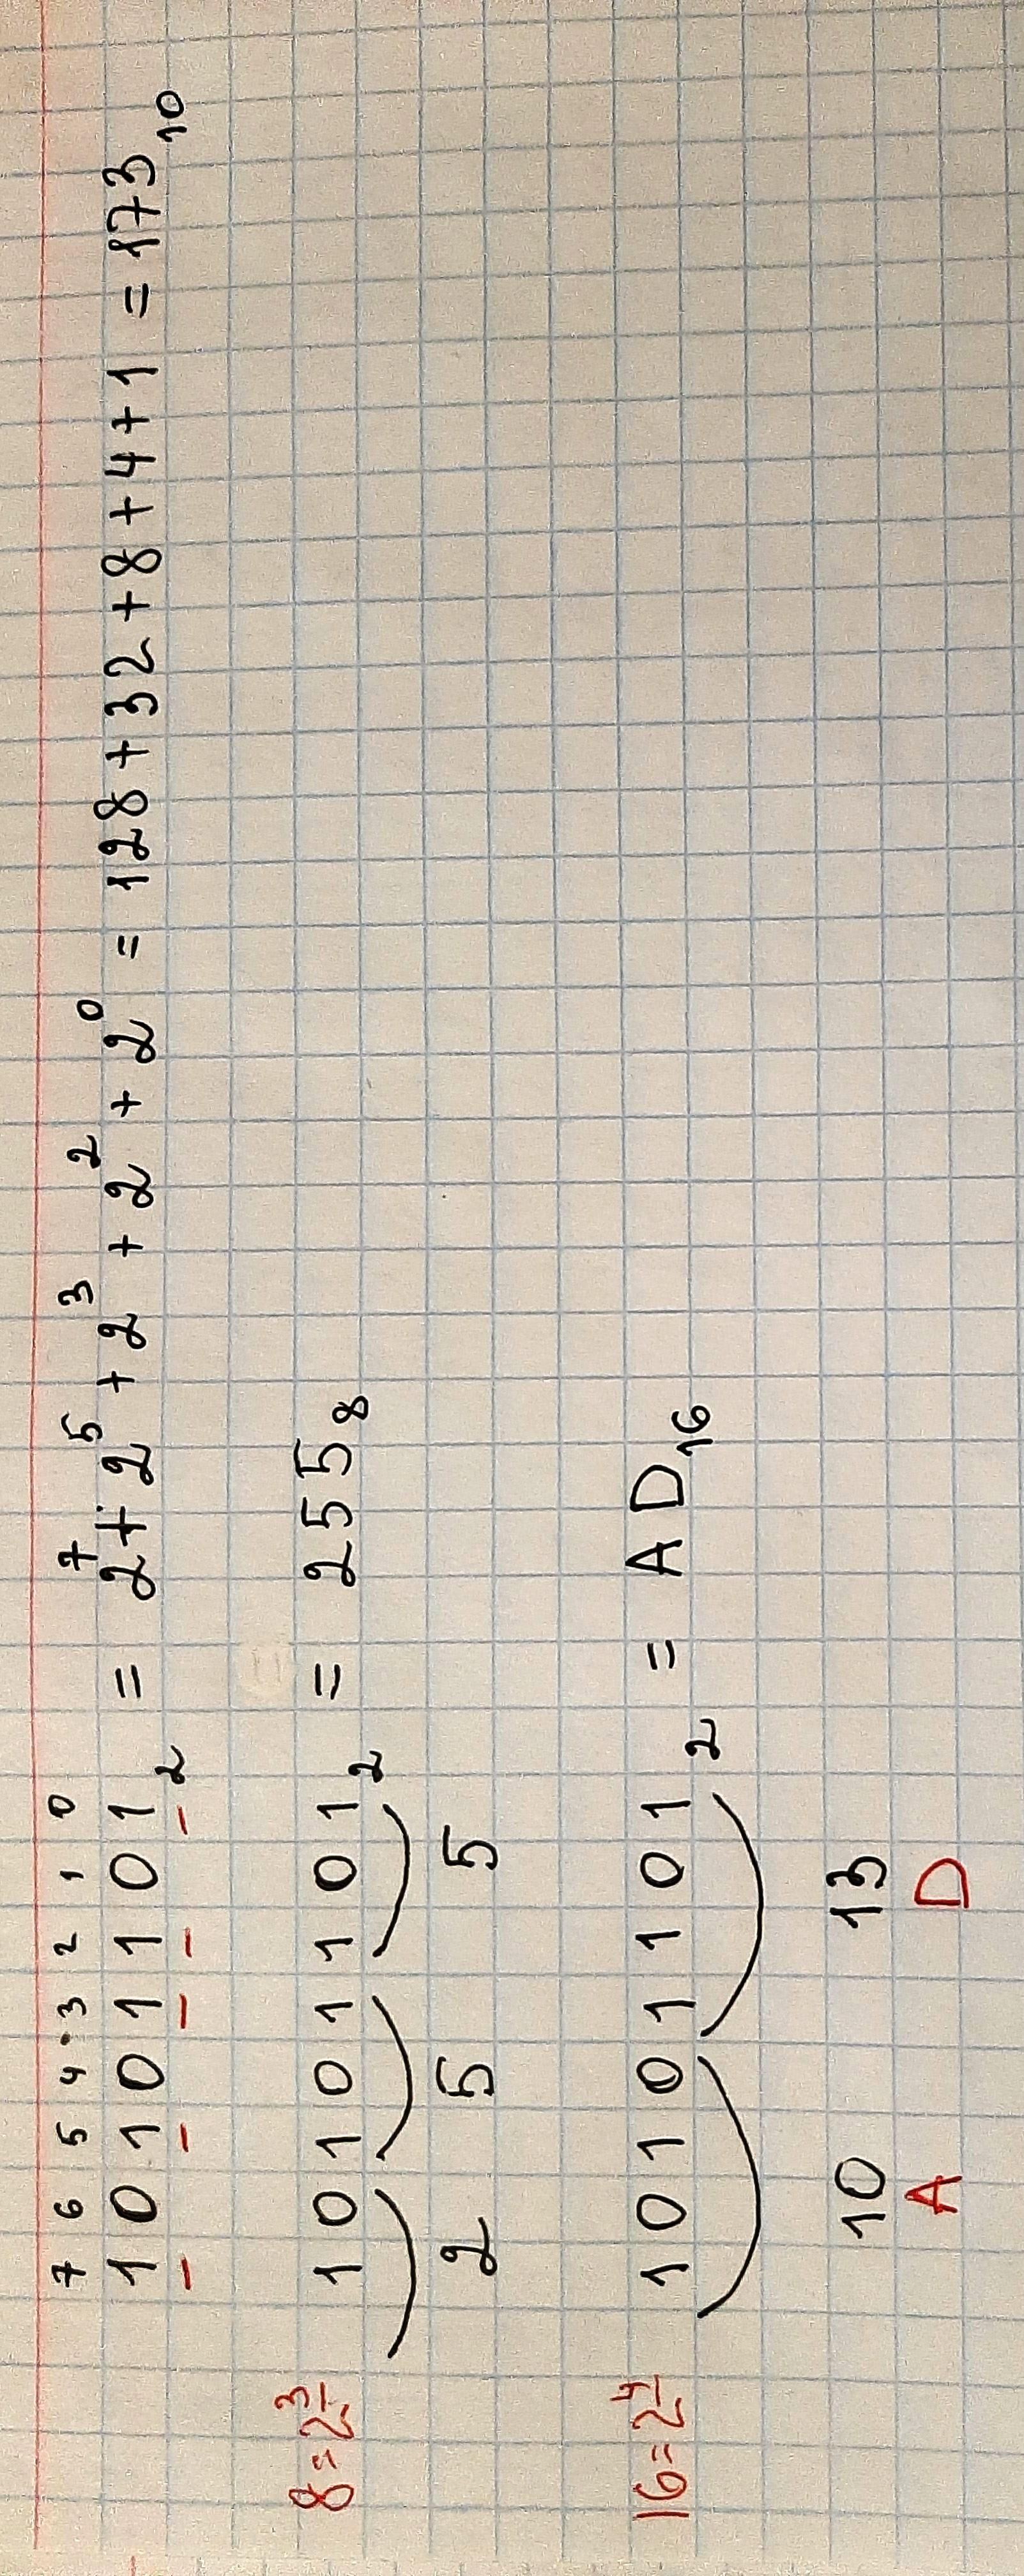 7 6 5 4 3 2 1 0
1 0 1 0 1 1 0 1₂ = 2⁷ + 2⁵ + 2³ + 2² + 2⁰ = 128 + 32 + 8 + 4 + 1 = 173₁₀
8 = 2³ 1 0 1 0 1 1 0 1₂ = 255₈
2 5 5
16 = 2⁴ 1 0 1 0 1 1 0 1₂ = A D₁₆
10 13
A D